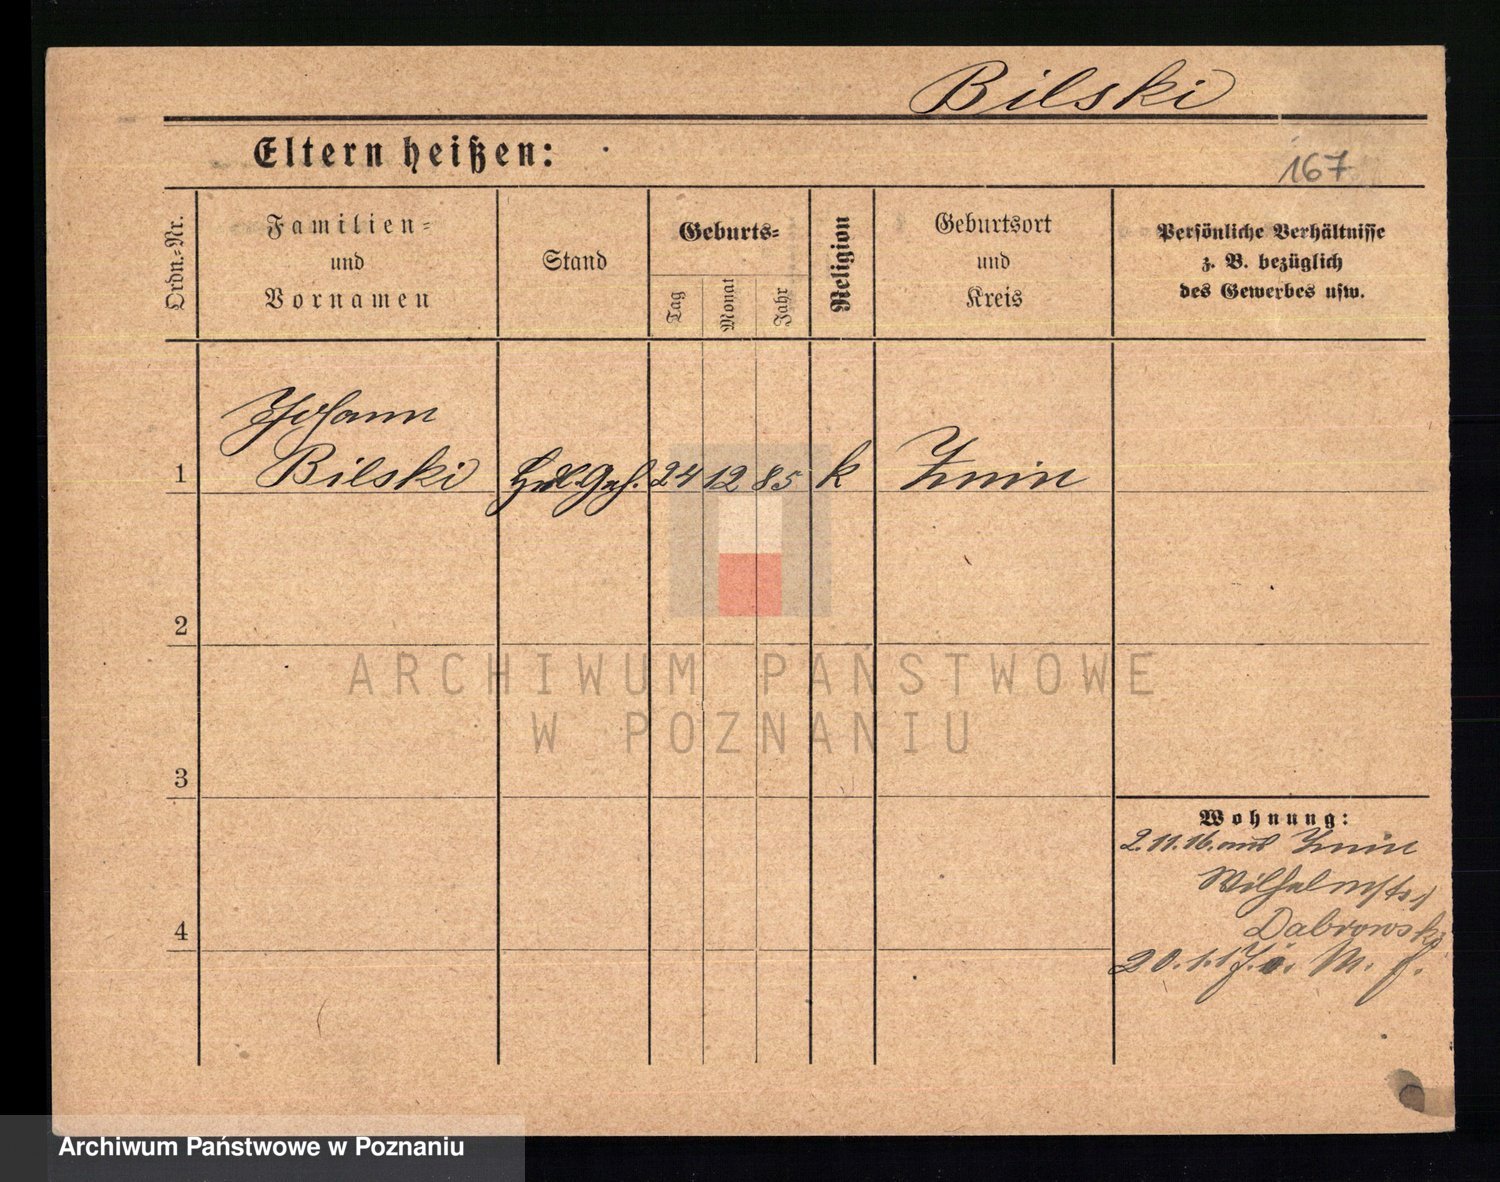 Bilski
Eltern heißen:
167
Ordn.-Nr.
Familien-
und
Vornamen
Stand
Geburts-
Tag
Monat
Jahr
Religion
Geburtsort
und
Kreis
Persönliche Verhältnisse
z. B. bezüglich
des Gewerbes usw.
Johann
1 Bilski 24 12 85 k Znin
2
3
4
Wohnung:
2.11.16. aus Znin
Wilhelmstr.
Dabrowski
20.1.17.
ARCHIWUM PAŃSTWOWE
W POZNANIU
Archiwum Państwowe w Poznaniu